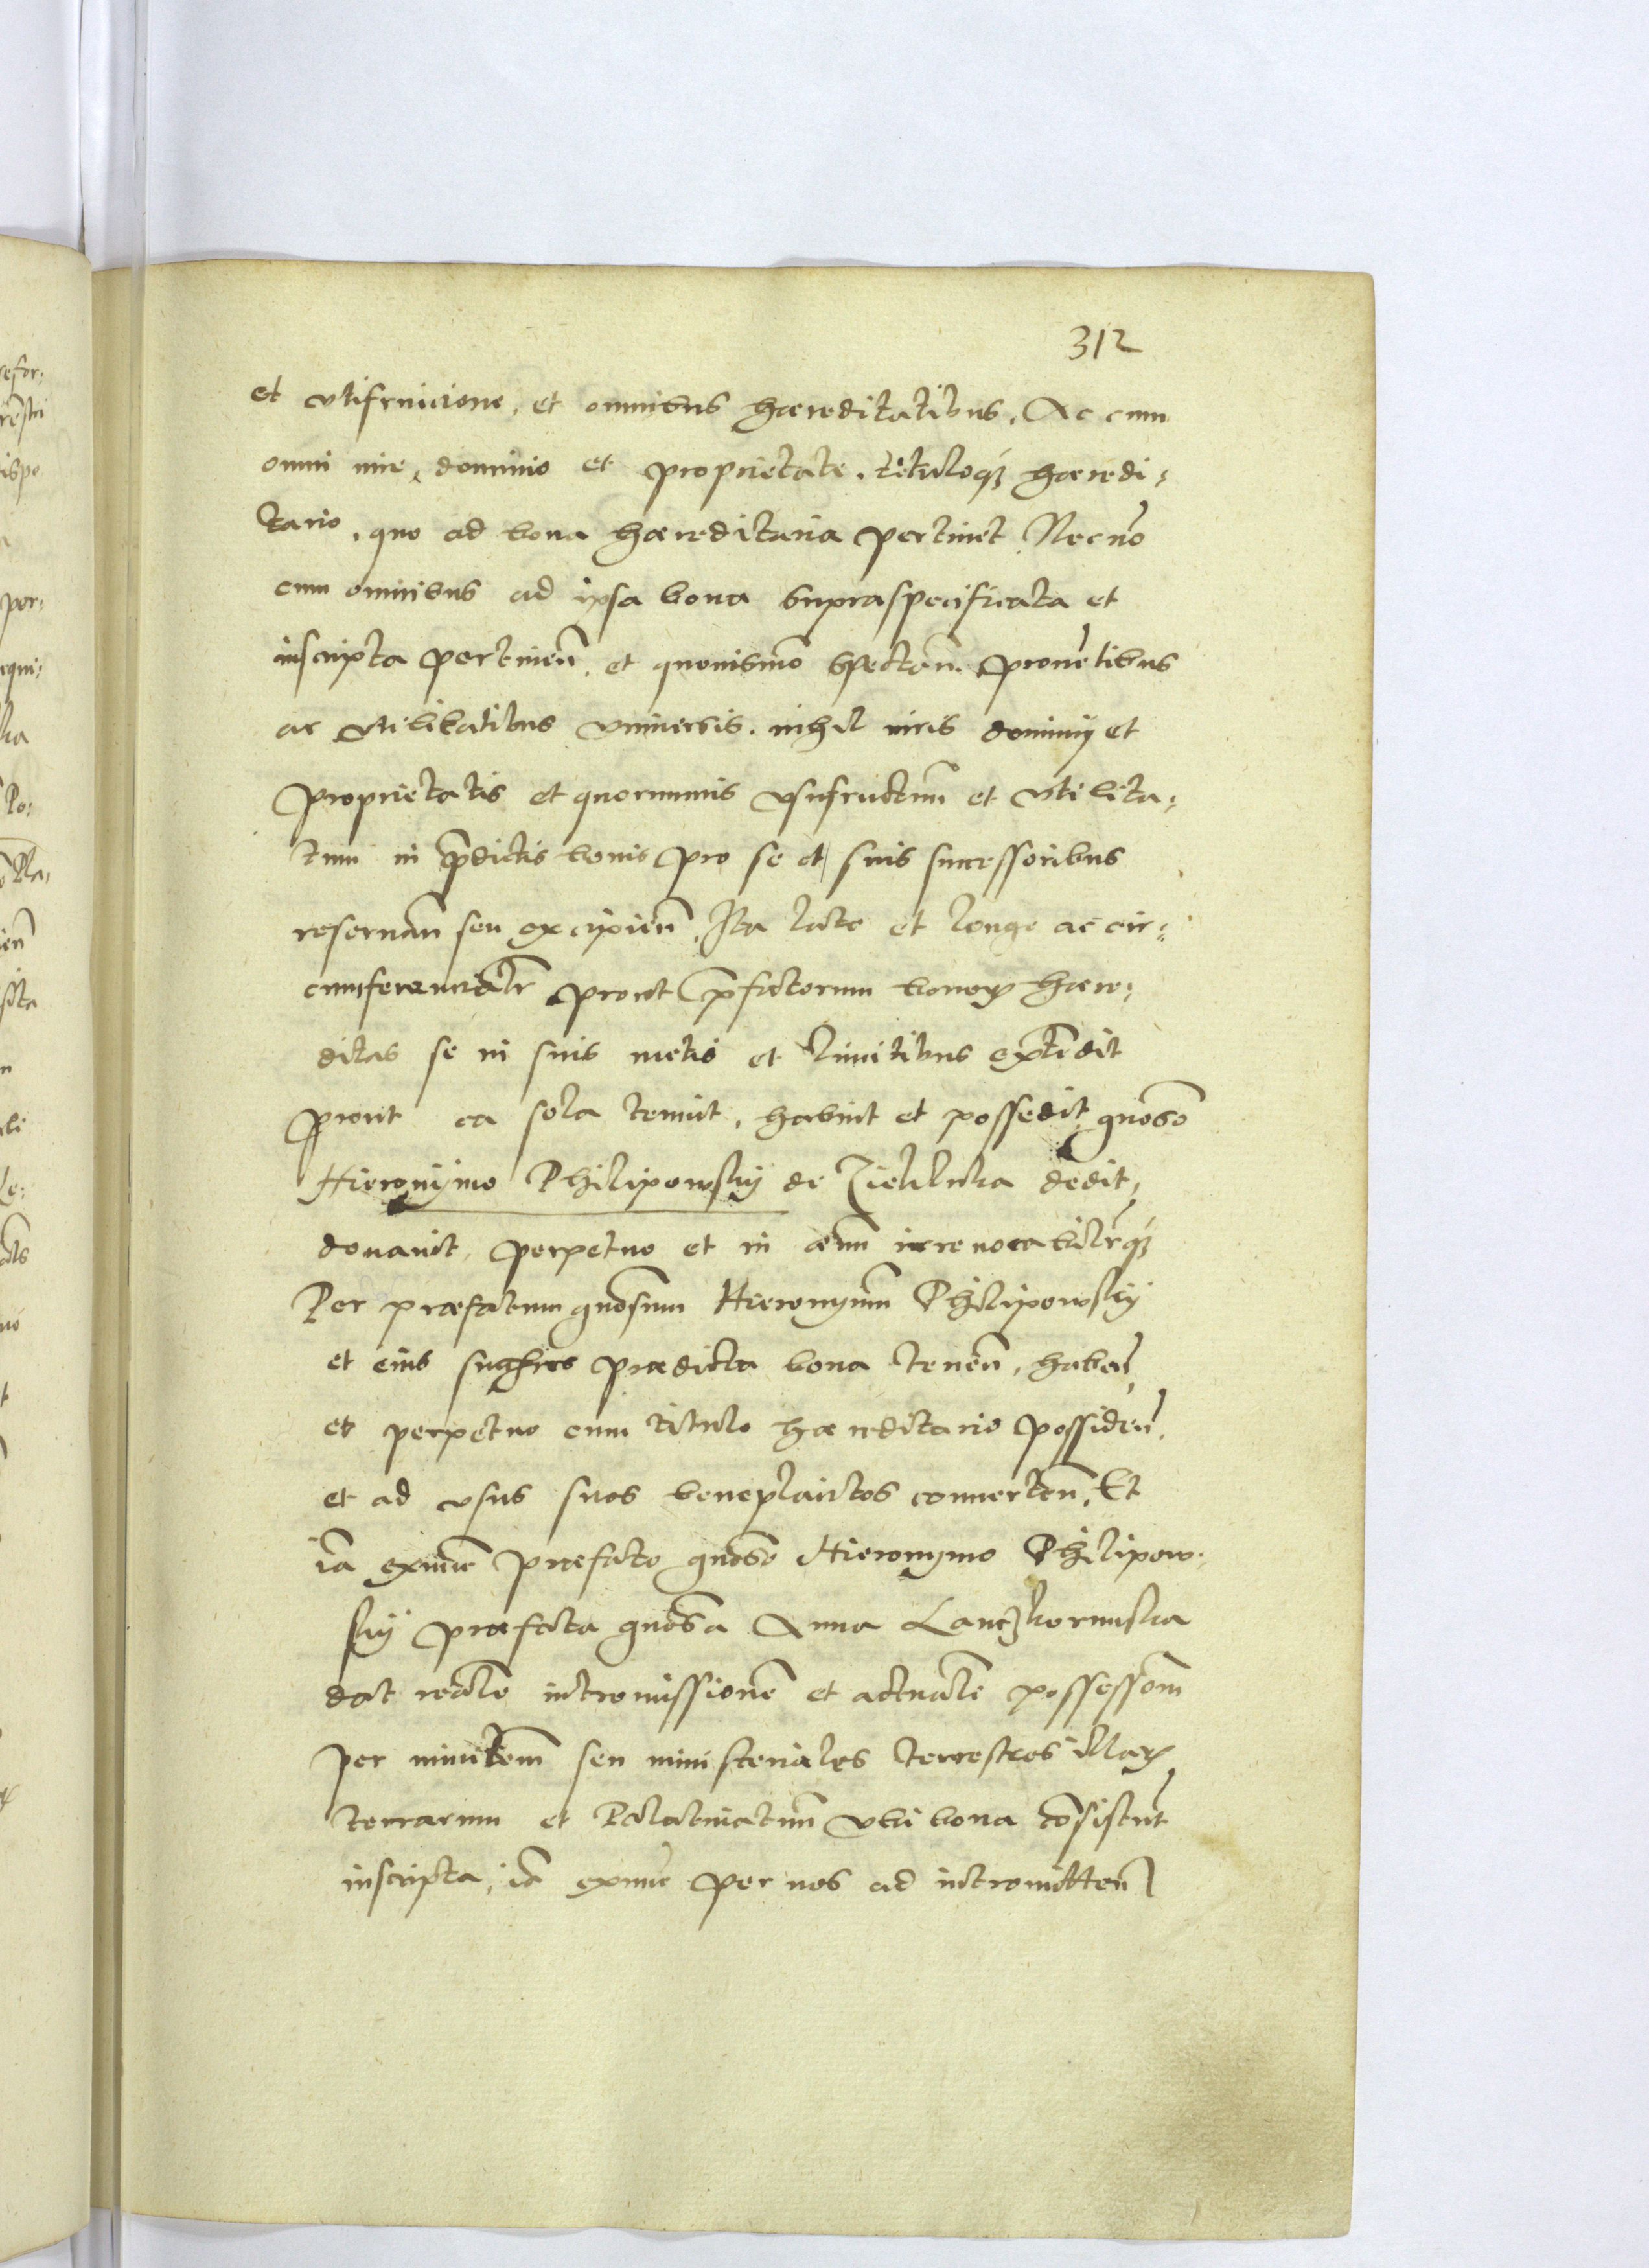 312
et vtifruicione, et omnibus haereditatibus. Ac cum
omni iure, dominio et proprietate, tituloq₃ haeredi:
tario, quo ad bona haereditaria pertinet, Necnō
cum omnibus ad ipsa bona supraspecificata et
inscripta pertineñ. et quouismō spectañ. prouētibus
ac vtilitatibus vniuersis. nihil iuris dominij et
proprietatis et quorumuis vsufructuū et vtilita:
tum in p̄dictis bonis pro se et suis successoribus
reseruañ seu excipieñ. Ita late et longe ac cir:
cumferencialr̄ prout p̄fatorum bonoꝝ haere:
ditas se in suis metis et limitibus extēdit
prout ea sola tenuit, habuit et possedit gn̄oso
Hieronijmo Philipowskij de dedit,
donauit, perpetuo et in aeuū irreuocabilr̄q₃
Per praefatum gn̄osum Hieronymū Philipowskij
et eius praedicta bona teneñ, habeñ
et perpetuo cum titulo haereditario possideñ.
et ad vsus suos beneplacitos conuerteñ. Et
iā exnūc praefato gn̄oso Hieronymo Philipow:
skij praefata gn̄osa Anna Lanczkorunska
dat realē intromissionē et actualē possessōm
per seu ministeriales terrestres illaꝝ
terrarum et Palatinatuū vbi bona cōsistūt
inscripta, iā exnūc per nos ad intromitteñ